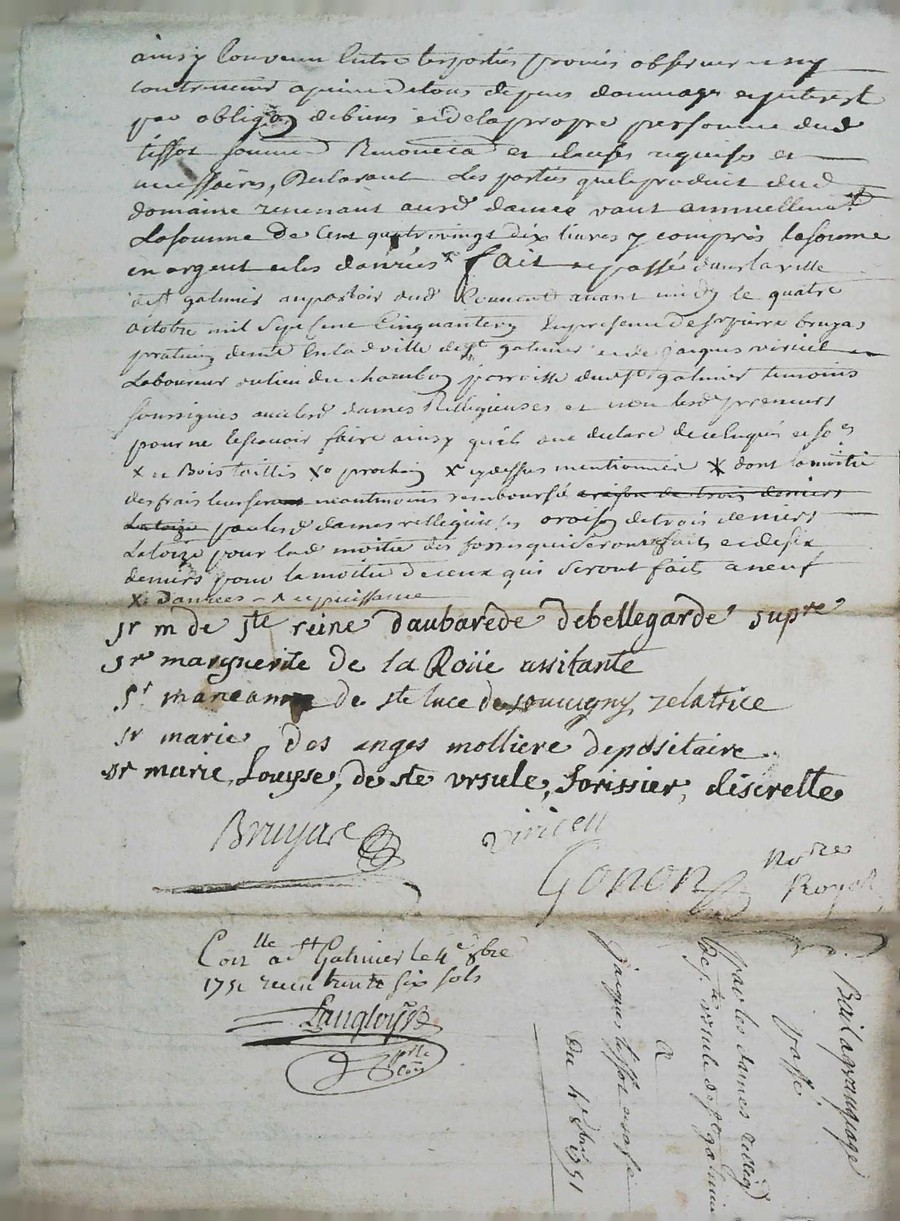 ainsy convenu entre les parties promis observer
contrevenir a peine de tous depens dommages et interest
par obligaon de biens et de la propre personne dud
tissot soumis Renoncia et clauses requises et
necessaires, Declarant Les parties que le produit dud
domaine revenant auxd dames vaut annuellement
La somme de Cent quatrevingt dix livres y compris la somme
en argent et les danrées x fait et passé dans la ville
de st galmier au parloir dud Couvent avant midy le quatre
octobre mil Sept Cent Cinquante un En presence de sr pierre bruyas
praticien demt En lad ville de st galmier et de jacques viricel
Laboureur du lieu du chambon parroisse dud st galmier temoins
soussignés avec lesd dames Relligieuses et non lesd preneurs
pour ne le scavoir faire ainsy qu'ils ont declaré de ce Enquis et so es
x et Bois taillis x prochain x cydessus mentionnés x dont la moitié
des frais leur sera neantmoins remboursée a raison de trois deniers
La toize par lesd dames relligieuses a raison de trois deniers
La toize pour lad moitié des fossés qui seront faits et de six
deniers pour la moitié de ceux qui seront faits a neuf
x danrées
sr m de ste reine daubarede debellegarde supre
sr marguerite de la Roüe assitante
sr marie anne de ste luce de souvigny zelatrice
sr marie des anges molliere depositaire
sr marie Louyse, de ste ursule, forissier, discrette
Bruyas
Viricell
Gonon
No re
Royal
Con lle a st Galmier le 4e 8bre
1751 receu trente six sols
Langloys
Bail a grangeage
passé
par les dames rellig
de ste ursule de st galmier
a
jacques tissot
Du 4e 8bre 1751